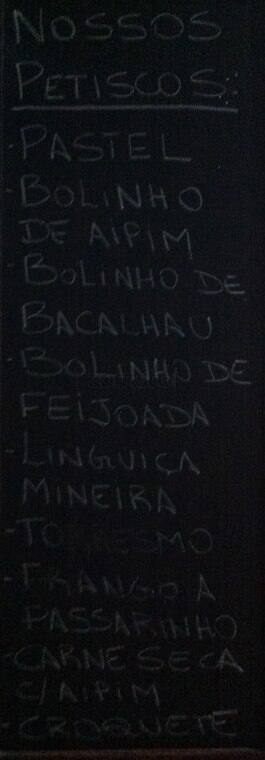 NOSSOS
PETISCOS:
- PASTEL
- BOLINHO
DE AIPIM
- BOLINHO DE
BACALHAU
- BOLINHO DE
FEIJOADA
- LINGUIÇA
MINEIRA
- TORRESMO
- FRANGO A
PASSARINHO
- CARNE SECA
C/ AIPIM
- CROQUETE